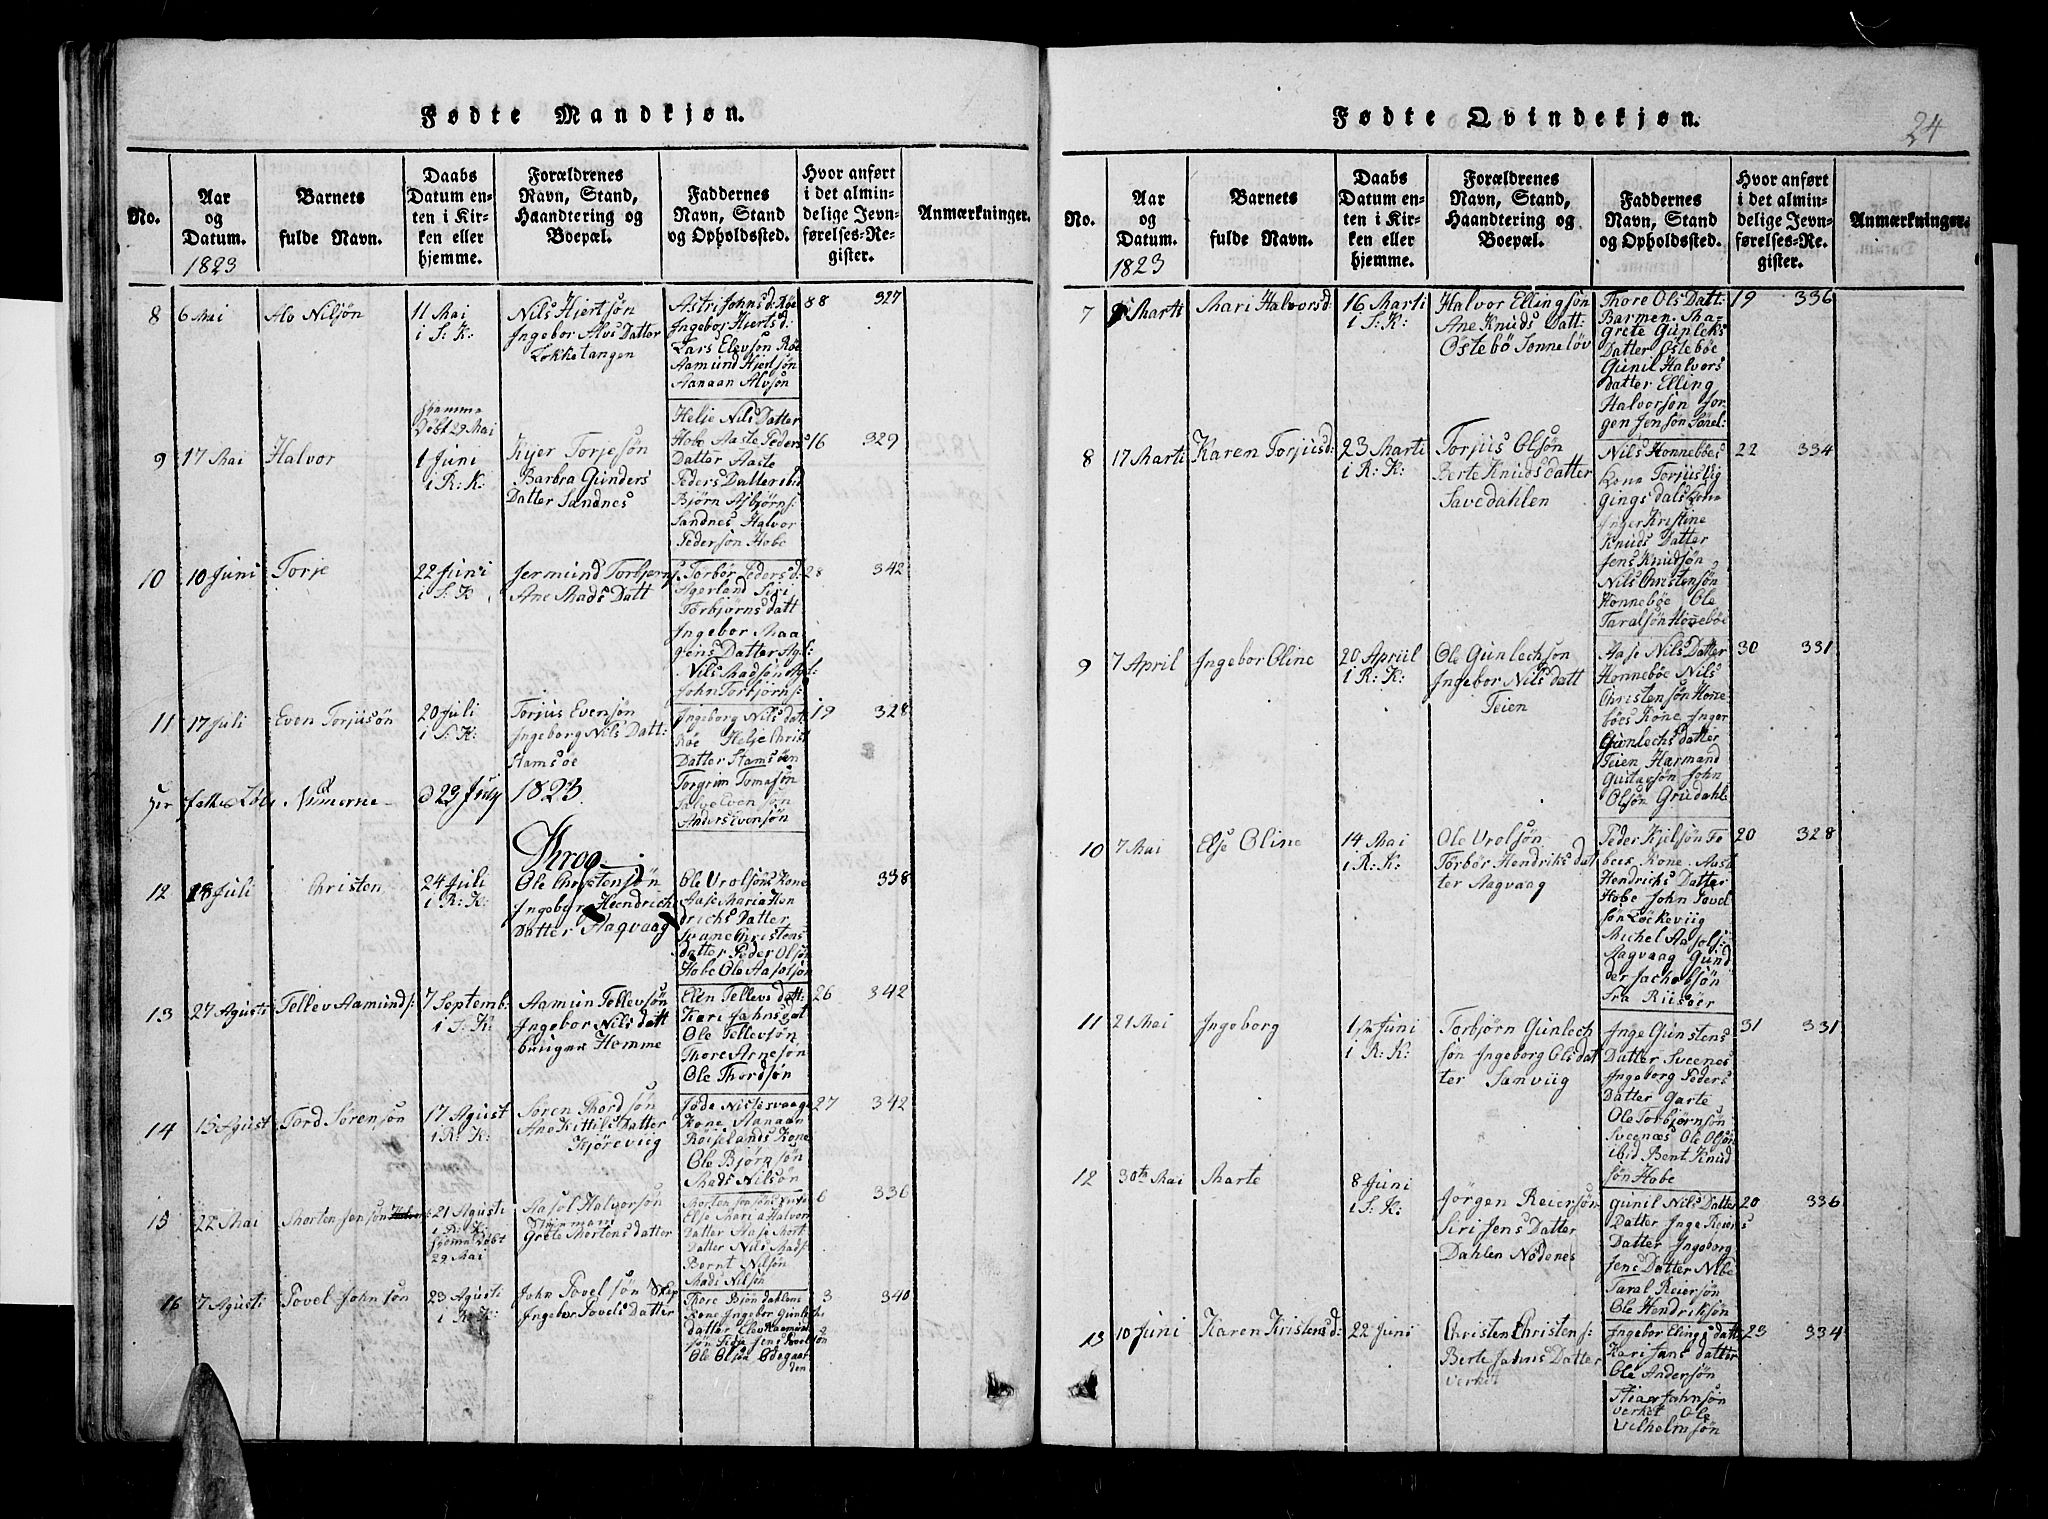 Fødte Mandkjøn.
No.
Aar
og
Datum.
1823
Barnets
fulde Navn.
Daabs
Datum en-
ten i Kir-
ken eller
hjemme.
Forældrenes
Navn, Stand,
Haandtering og
Boepæl.
Faddernes
Navn, Stand
og Opholdssted.
Hvor anført
i det almin-
delige Jevn-
førelses-Re-
gister.
Anmærkninger.
8
6 Mai
Alv Nilsøn
11 Mai
i S: K:
Nils Hjertsøn
Ingebor Alvs Datter
Løkketangen
Astri Johnsd: Røe
Ingebor Hjertsd:
Lars Elevson Røe
Aamund Hjertsøn
Aanaan Alvsøn
88 327
9
17 Mai
Halvor
hjemme
Døbt 29 Mai
1 Juni
i R: K:
Kyer Torjesøn
Barbra Gunders
Datter Sandnes
Helje Nils Datter
Hobe Aaste Peders
Datter Aaste
Peders Datter ibid
Bjørn Asbjørns:
Sandnes Halvor
Pedersøn Hobe
16 329
10
10 Juni
Torje
22 Juni
i S: K.
Jermund Torbjørns.
Ane Mads Datt
Torbør Pedersd:
Agerland Siri
Torbjørns datt
Ingebor Maa
gens Datter Agl:
Nils Madsøn Agl:
John Torbjørns:
28 342
11
17 Juli
Even Torjusøn
20 Juli
i S: K:
Torjus Evensøn
Ingeborg Nils Datt:
Hamsøe
Ingeborg Nils dat
Røe Helje Christ
Datter Hamsøen
Torgrim Tomasøn
Salve Evensøn
Anders Evensøn
19 328
Numerne d 23 July 1823.
Krog
12
18 Juli
Christen
24 Juli
i R: K:
Ole Christensøn
Ingebor Hendrichs
Datter Aagvaag
Ole Vrolsøns Kone
Aase Maria Hen
drichs Datter
Svane Christens
datter Peder Olsøn
Hobe Ole Aasolsøn
338
13
27 Agusti
Tellev Aamunds:
7 Septemb:
i S: K:
Aamun Tellevsøn
Ingebor Nils datt
Hemme
Elen Tellevs datt:
Kari Jahns dat
Ole Tellevsøn
Thore Arnesøn
Ole Thordsøn
26 342
14
15 Agust
Tord Sørensøn
17 Agust
i R: K:
Søren Thordsøn
Ane Kittils Datter
Kjøreviig
Kone Aanaan
Røiselands Kone
Ole Bjørnsøn
Mads Nilsøn
27 342
15
22 Mai
Morten Jensøn
21 Agusti
i R: K:
hjemme Døbt
29 Mai
Aasol Halvorsøn
Stiermand
Grete Mortens datter
Else Maria Halvor
Datter Aase Mort
Datter Nils Mads
Bernt Nilsøn
Mads Nilsøn
6 336
16
7 Agusti
Povel Johnsøn
23 Agusti
i R: K:
John Povelsøn Skip
Ingebor Povels Datter
Thore Bjøndahlens
Kone Ingebor Gunlechs
datter Elev Raamund
søn Jens Povelsøn
Ole Olsøn Ødegaar
den
3 340
Fødte Qvindekjøn.
24
No.
Aar
og
Datum.
1823
Barnets
fulde Navn.
Daabs
Datum en-
ten i Kir-
ken eller
hjemme.
Forældrenes
Navn, Stand,
Haandtering og
Boepæl.
Faddernes
Navn, Stand
og Opholdssted.
Hvor anført
i det almin-
delige Jevn-
førelses-Re-
gister.
Anmærkninger.
7
Marti
Mari Halvorsd:
16 Marti
i S: K:
Halvor Ellingsøn
Ane Knuds Datt:
Østebø Sønneløv
Thore Ols Datt:
Barmen. Ma-
grete Gunleks
Datter Østebøe
Gunil Halvors
datter Elling
Halvorsøn Jor
gen Jensøn Sønel:
19 336
8
17 Marti
Karen Torjusd:
23 Marti
i R: K:
Torjus Olsøn
Berte Knuds datter
Savedahlen
Nils Honnebøes
Kone Torjus Vig
gings dals Kone
Inger Kristine
Knuds Datter
Jens Knudsøn
Nils Christensøn
Honnebøe Ole
Taralsøn Honebøe
22 334
9
7 April
Ingebor Oline
20 Apriil
i R: K:
Ole Gunlechsøn
Ingebor Nils datt
Teien
Aase Nils Datter
Honnebøe Nils
Christensøn Hone
bøes Kone Inger
Gunlechs datter
Teien Harmand
Gustavsøn John
Olsøn Grudahl
30 331
10
7 Mai
Else Oline
14 Mai
i R: K:
Ole Vrolsøn
Torbør Hendriks dat
ter Aagvaag
Peder Kjelsøn Fe
bees Kone. Aase
Hendrichs Datter
Hobe John Povel
søn Løckeviig
Michel Aasols:
Aagvaag Gund
der Jachobsøn
Fra Riisøer
20 328
11
21 Mai
Ingeborg
1ste Juni
i R: K:
Torbjørn Gunlech
søn Ingeborg Ols dat
ter Sanviig
Inge Gunstens
Datter Sveenes
Ingeborg Peders
Datter Garte
Ole Torbjørnsøn
Sveenæs Ole Olsøn
ibid Bent Knud
søn Hobe
31 331
12
30te Mai
Marte
8 Juni
i S: K:
Jørgen Reiersøn
Siri Jens Datter
Dahlen Nødenes
Gunil Nils Datter
Datter Inge Reiers
Datter Ingeborg
Jens Datter Nibe
Taral Reiersøn
Ole Hendriksøn
20 336
13
10 Juni
Karen Kristensd:
22 Juni
Christen Christens:
Berte Jahns Datter
Verket
Ingebor Elings datt
Kari Jans datter
Ole Andersøn
Jahnsøn
verket Ole
Vilhelmsøn
23 334